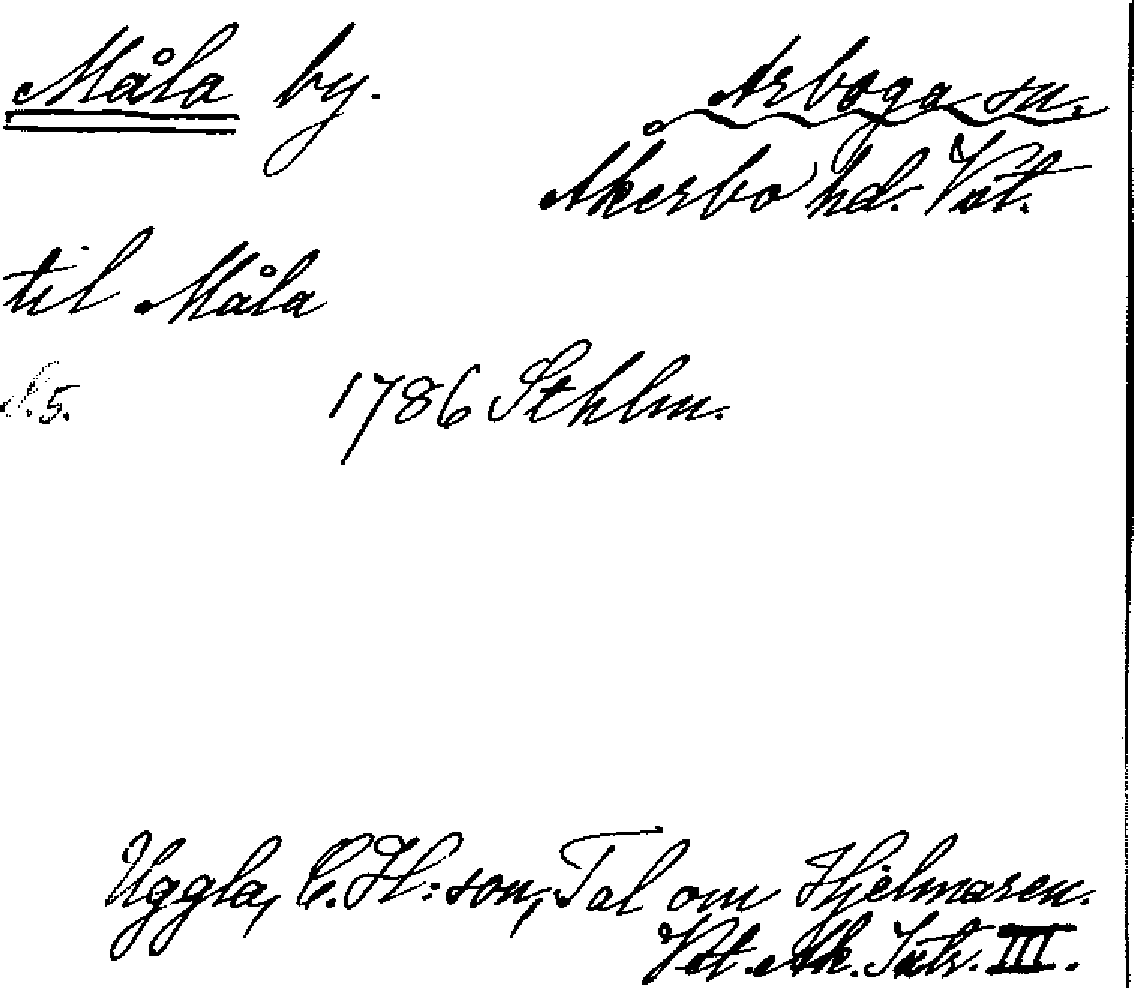 Måla by.
Arboga sn.
Åkerbo hd. Vstm.
til Måla
S. 5.
1786 Sthlm.
Uggla, C. H:son, Tal om Hjelmaren.
Vet. Ak. Intr. III.